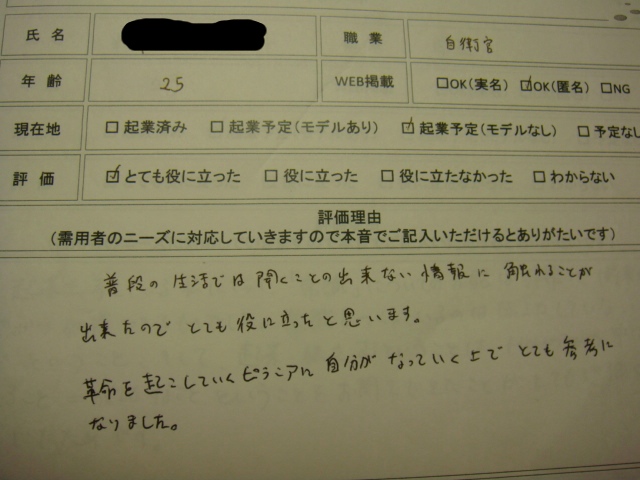 氏名 職業 自衛官
年齢 25 WEB掲載 □OK(実名) ☑OK(匿名) □NG
現在地 □起業済み □起業予定(モデルあり) ☑起業予定(モデルなし) □予定なし
評価 ☑とても役に立った □役に立った □役に立たなかった □わからない
評価理由
(需用者のニーズに対応していきますので本音でご記入いただけるとありがたいです)
普段の生活では聞くことの出来ない情報に触れることが
出来たのでとても役に立ったと思います。
革命を起こしていくピラニアに自分がなっていく上でとても参考に
なりました。